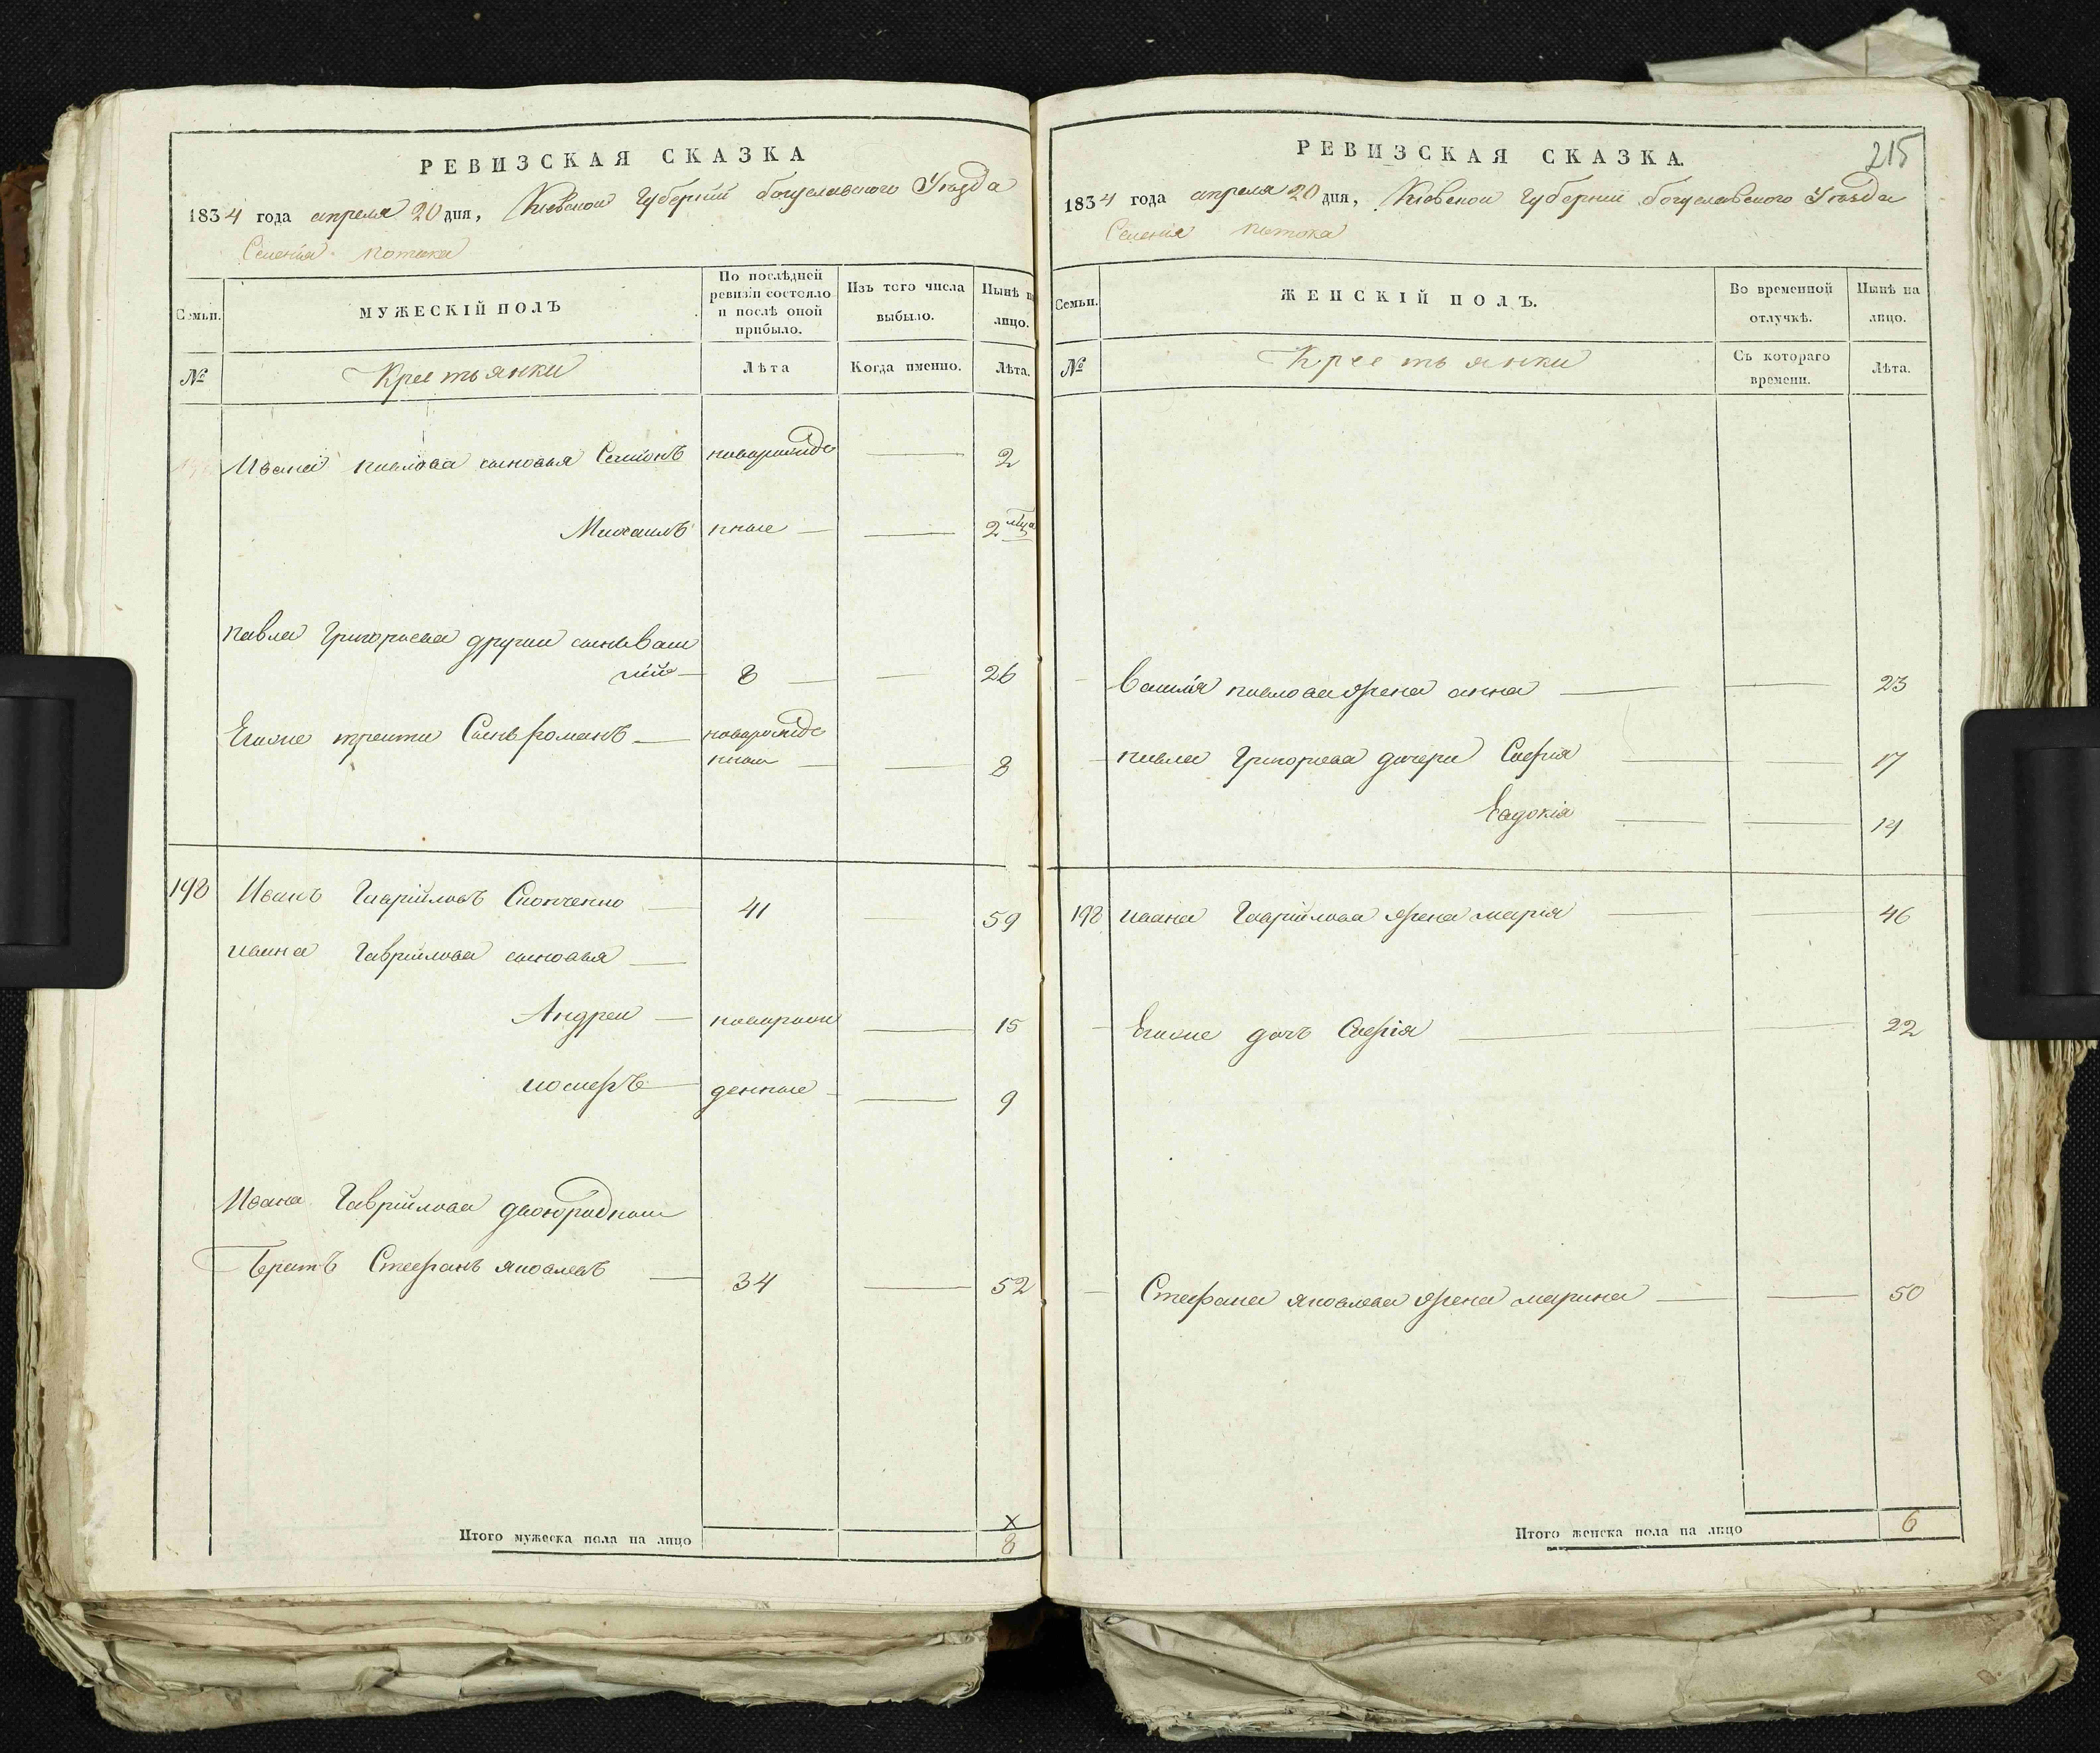 РЕВИЗСКАЯ СКАЗКА
1834 года апреля 20 дня, Киевской Губернии богуславского Уѣзда
Селения Потока
Семьи.
МУЖЕСКІЙ ПОЛЪ
По послѣдней ревизіи состояло и послѣ оной прибыло.
Изъ того числа выбыло.
Нынѣ на лицо.
№
Крестьянки
Лѣта
Когда именно.
Лѣта.
Ивана павлова сыновья Семионъ новорожде 2
Михаилъ нные 2 мца
павла Григорьева другии сынъ Васи
лій 8 26
Егоже третии Сынъ романъ новорожде
нныи 8
198 Иванъ Гавріиловъ Сионченко 41 59
ивана Гавріилова сыновья
Андреи новорож 15
иосифъ денные 9
Ивана Гавріилова двоюродныи
братъ Стефанъ яковлевъ 34 52
Итого мужеска пола на лицо
8
РЕВИЗСКАЯ СКАЗКА.
215
1834 года апреля 20 дня, Киевской Губернии богуславского Уѣзда
Селения Потока
Семьи.
ЖЕНСКІЙ ПОЛЪ.
Во временной отлучкѣ.
Нынѣ на лицо.
№
Крестьянки
Съ котораго времени.
Лѣта.
Василія павлова жена анна 23
павла Григорьева дочери Софія 17
Евдокія 14
198 ивана Гавріилова жена марія 46
Егоже дочъ Софія 22
Стефана яковлева жена марина 50
Итого женска пола на лицо 6